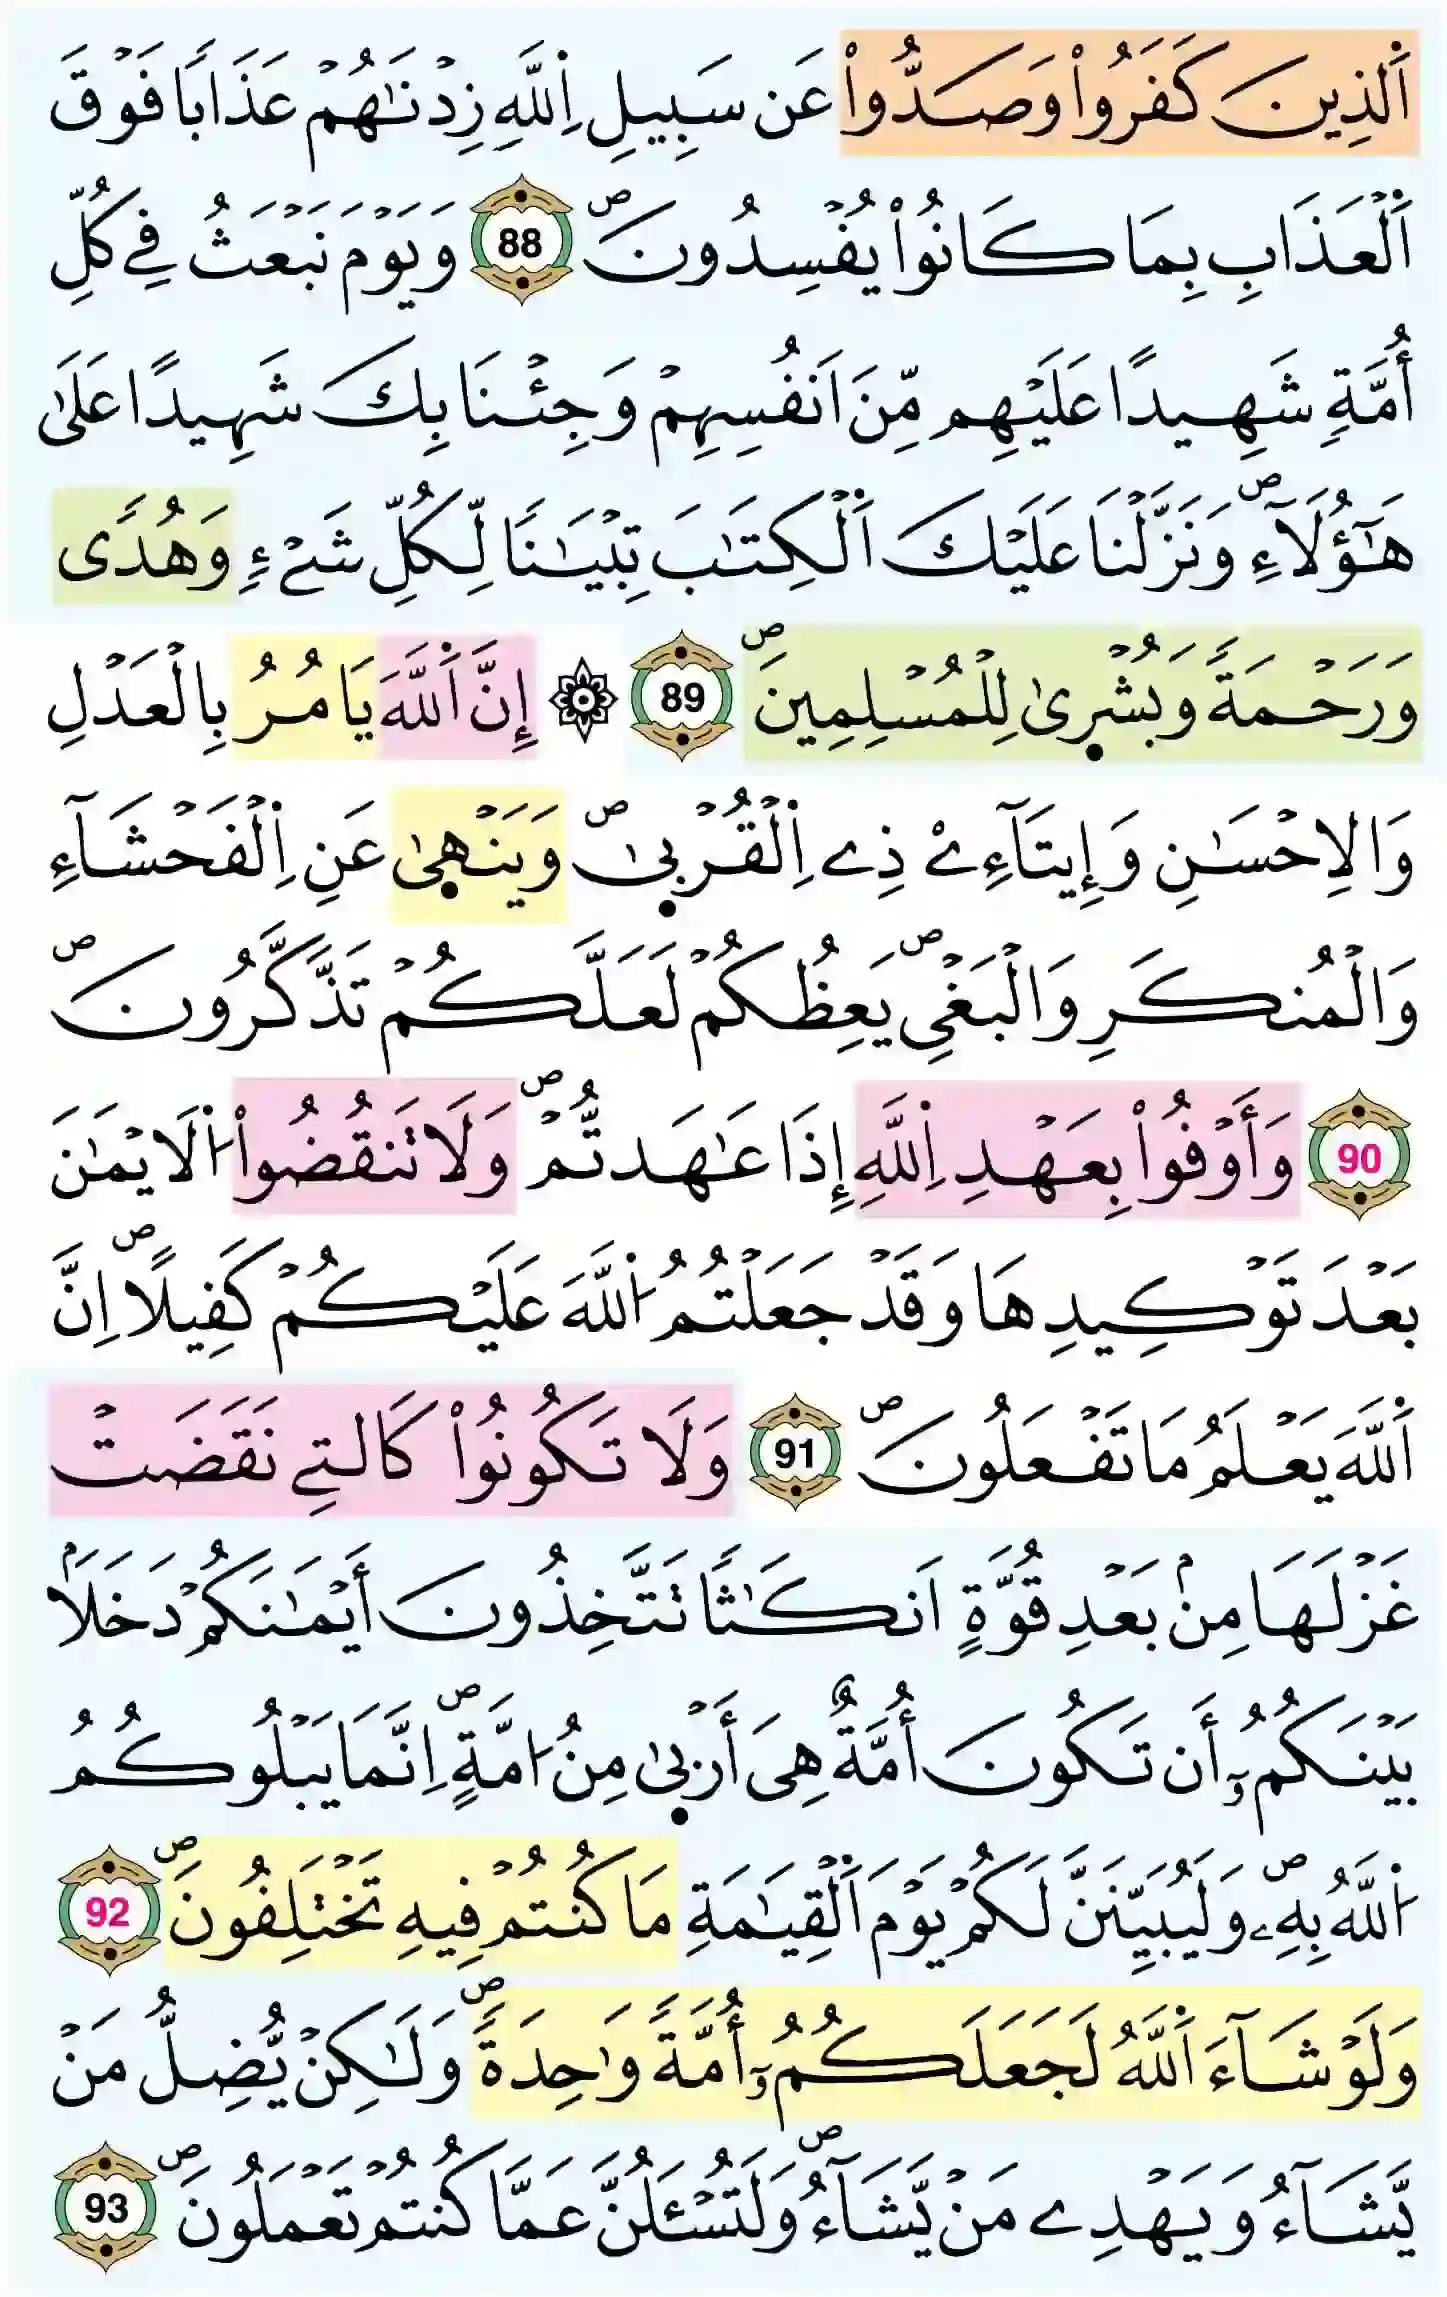 اَ۬لذِينَ كَفَرُواْ وَصَدُّواْ عَن سَبِيلِ اِ۬للَّهِ زِدْنَٰهُمْ عَذَابٗا فَوْقَ
اَ۬لْعَذَابِ بِمَا كَانُواْ يُفْسِدُونَۖ 88 وَيَوْمَ نَبْعَثُ فِے كُلِّ
أُمَّةٖ شَهِيداً عَلَيْهِم مِّنَ اَنفُسِهِمْ وَجِئْنَا بِكَ شَهِيداً عَلَىٰ
هَٰٓؤُلَآءِۖ وَنَزَّلْنَا عَلَيْكَ اَ۬لْكِتَٰبَ تِبْيَٰناٗ لِّكُلِّ شَےْءٖ وَهُدىٗ
وَرَحْمَةٗ وَبُشْر۪ىٰ لِلْمُسْلِمِينَۖ 89 ۞ إِنَّ اَ۬للَّهَ يَامُرُ بِالْعَدْلِ
وَالِاحْسَٰنِ وَإِيتَآءِےْ ذِے اِ۬لْقُرْب۪ىٰۖ وَيَنْه۪ىٰ عَنِ اِ۬لْفَحْشَآءِ
وَالْمُنكَرِ وَالْبَغْيِۖ يَعِظُكُمْ لَعَلَّكُمْ تَذَّكَّرُونَۖ
90 وَأَوْفُواْ بِعَهْدِ اِ۬للَّهِ إِذَا عَٰهَدتُّمْۖ وَلَا تَنقُضُواْ اُ۬لَايْمَٰنَ
بَعْدَ تَوْكِيدِهَا وَقَدْ جَعَلْتُمُ اُ۬للَّهَ عَلَيْكُمْ كَفِيلاًۖ اِنَّ
اَ۬للَّهَ يَعْلَمُ مَا تَفْعَلُونَۖ 91 وَلَا تَكُونُواْ كَالتِے نَقَضَتْ
غَزْلَهَا مِنۢ بَعْدِ قُوَّةٍ اَنكَٰثاٗ تَتَّخِذُونَ أَيْمَٰنَكُمْ دَخَلاَۢ
بَيْنَكُمُۥٓ أَن تَكُونَ أُمَّةٌ هِيَ أَرْب۪ىٰ مِنُ ا۟مَّةٍۖ اِنَّمَا يَبْلُوكُمُ
اُ۬للَّهُ بِهِۦۖ وَلَيُبَيِّنَنَّ لَكُمْ يَوْمَ اَ۬لْقِيَٰمَةِ مَا كُنتُمْ فِيهِ تَخْتَلِفُونَۖ 92
وَلَوْ شَآءَ اَ۬للَّهُ لَجَعَلَكُمُۥٓ أُمَّةٗ وَٰحِدَةٗۖ وَلَٰكِنْ يُّضِلُّ مَنْ
يَّشَآءُ وَيَهْدِے مَنْ يَّشَآءُۖ وَلَتُسْـَٔلُنَّ عَمَّا كُنتُمْ تَعْمَلُونَۖ 93